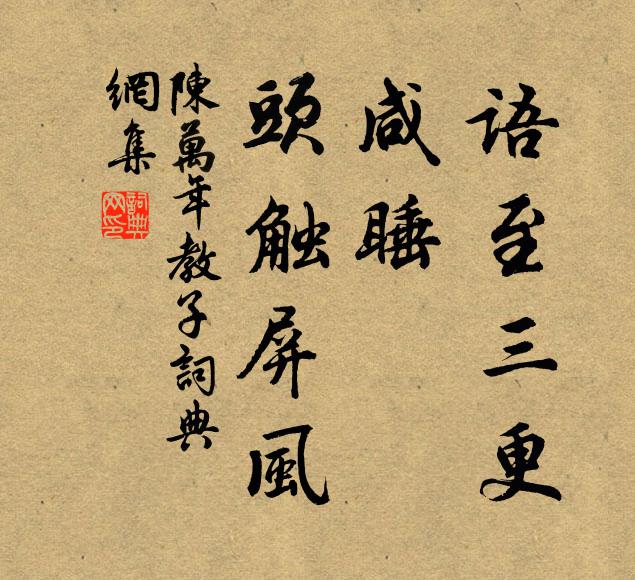 語至三更
咸睡
頭触屏風
陳萬年教子詞典
網集
詞典
网印